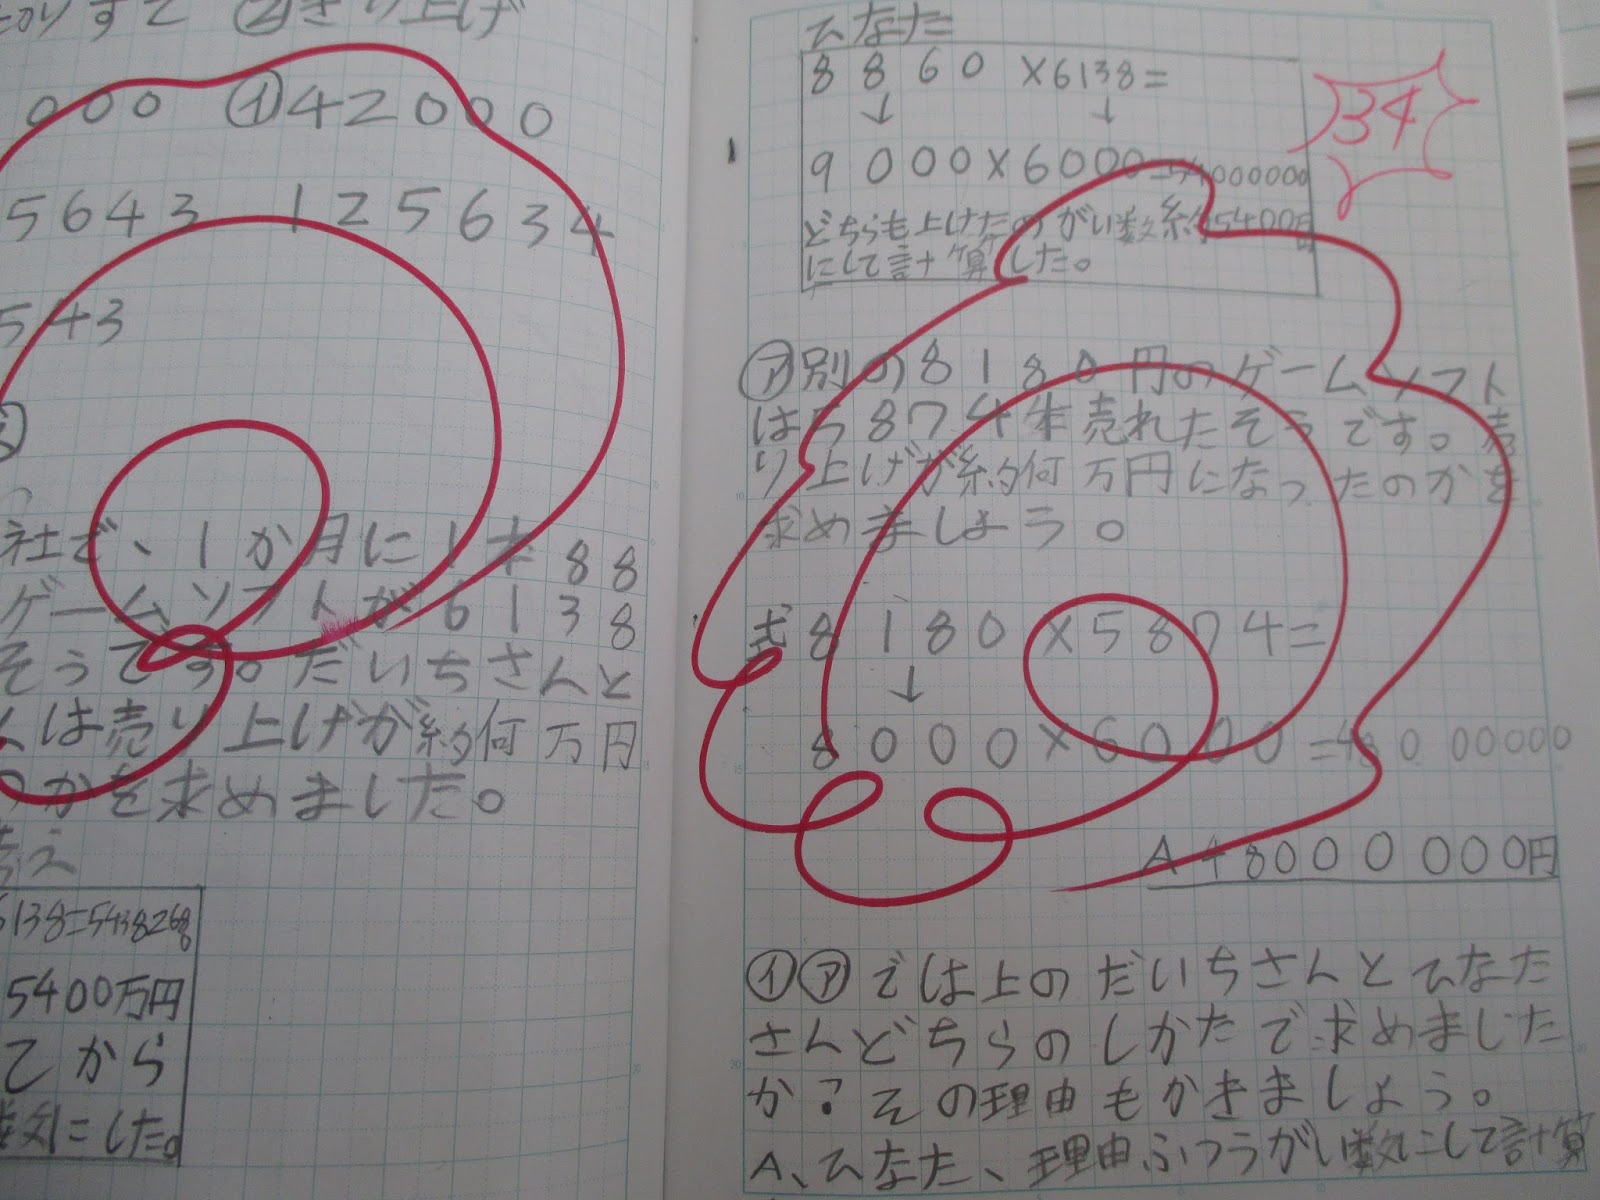 切りすて ②きり上げ
000 ①42000
5643 125634
543
社で、1か月に1本88
ゲームソフトが6138
そうです。だいちさんと
は売り上げが約何万円
のかを求めました。
考え
6138=54382680
5400万円
てから
数にした。
ひなた
8860×6138=
↓ ↓
9000×6000=54000000
どちらも上げたのがい数約5400万円
にして計算した。
34
㋐別の8180円のゲームソフト
は5874本売れたそうです。売
り上げが約何万円になったのかを
求めましょう。
式8180×5874=
↓
8000×6000=48000000
A 48000000円
㋑㋐では上のだいちさんとひなた
さんどちらのしかたで求めました
か?その理由もかきましょう。
A、ひなた、理由ふつうがい数にして計算